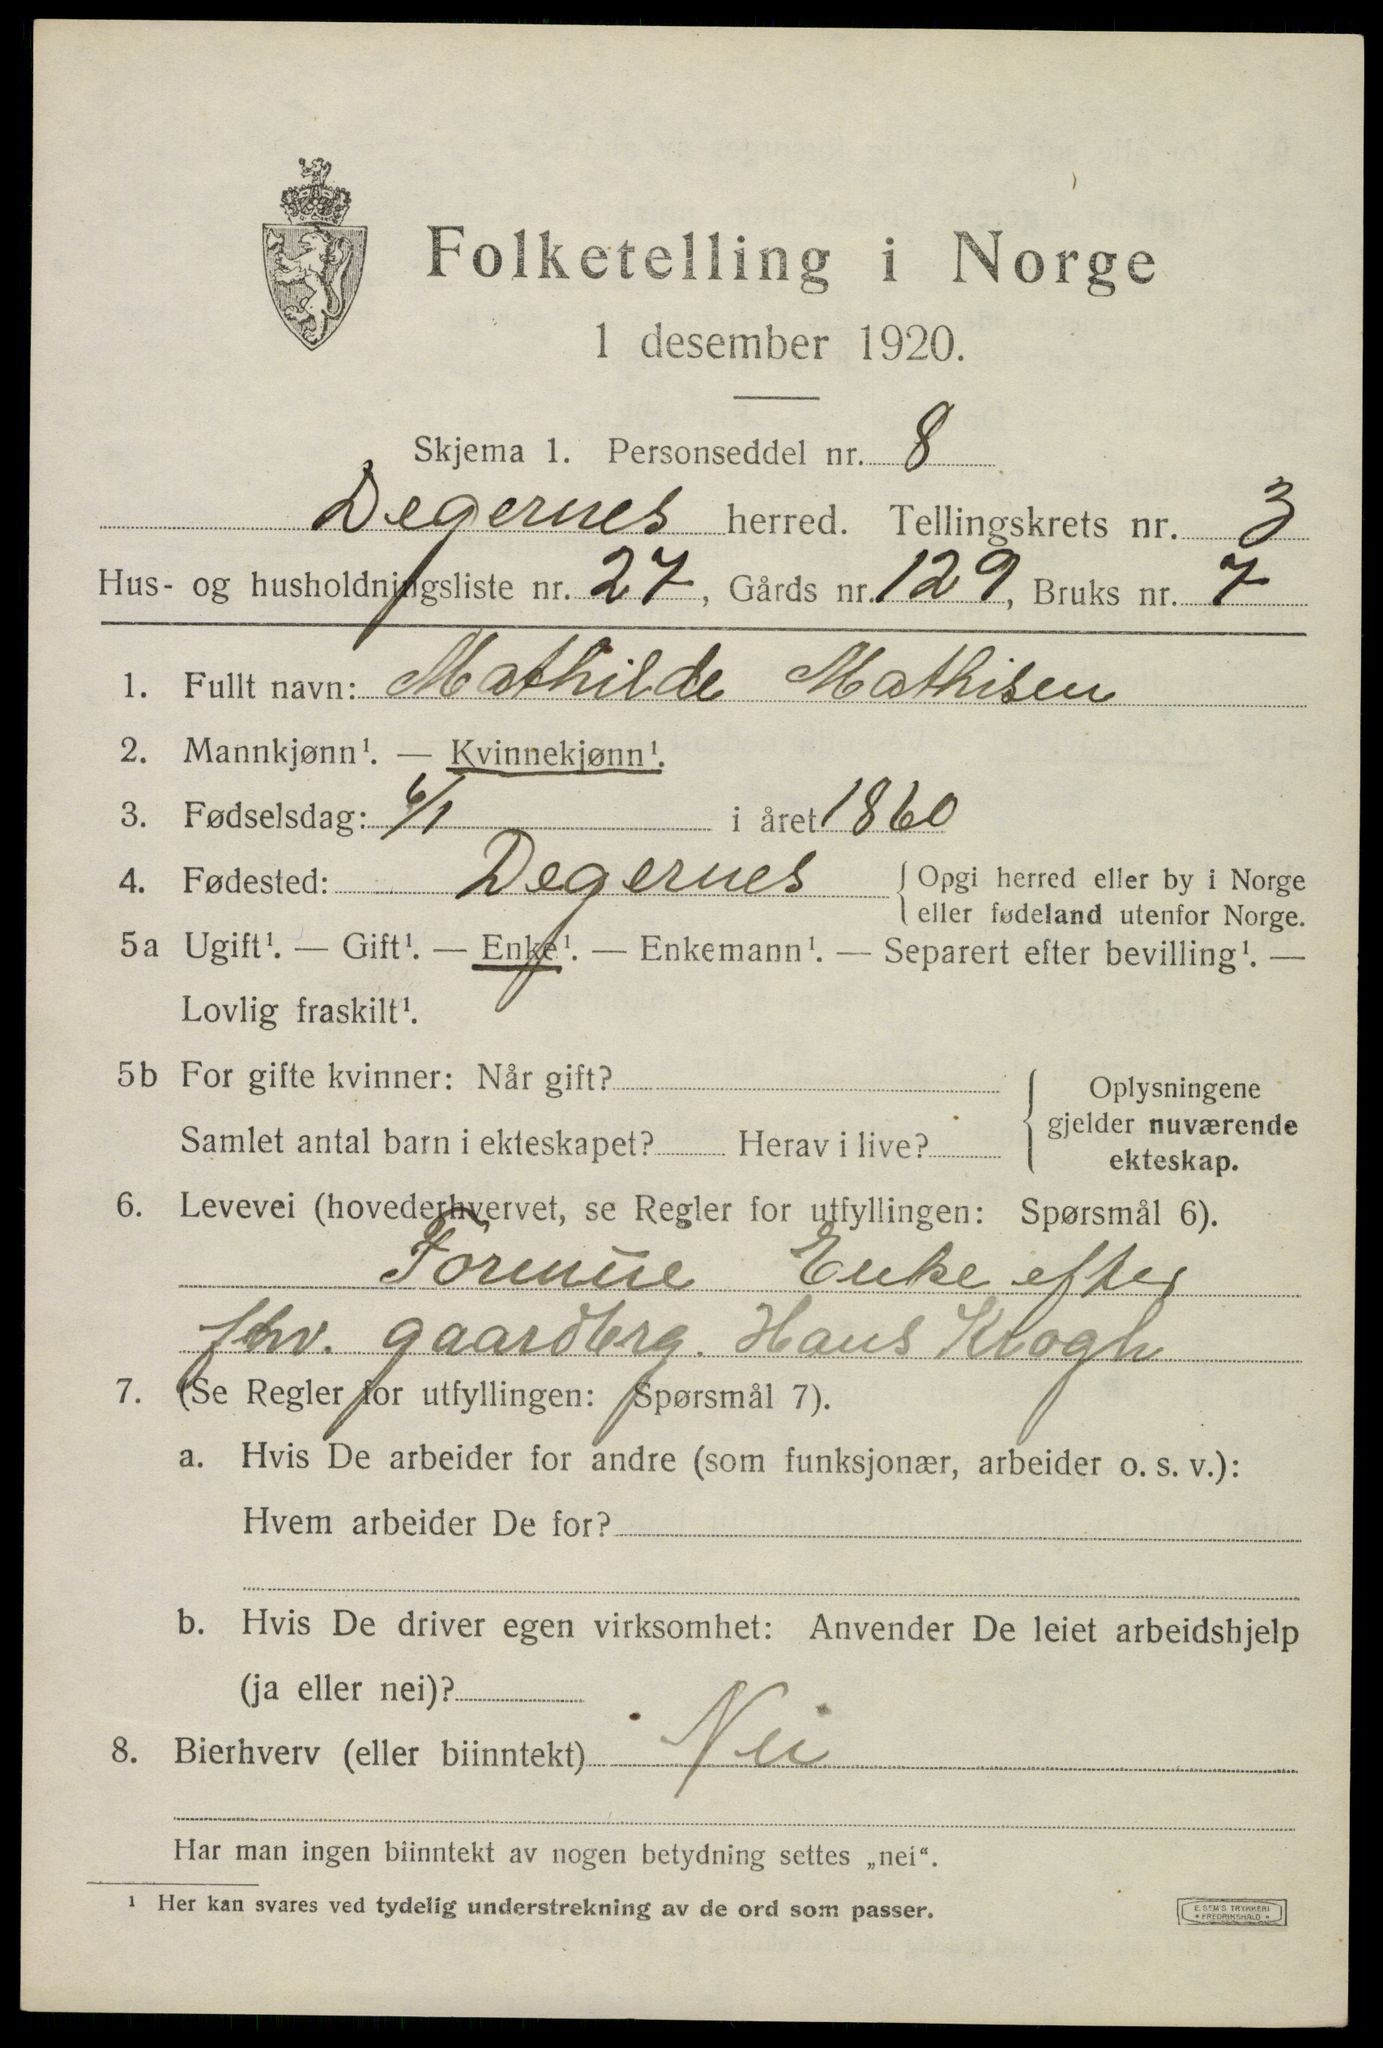 Folketelling i Norge
1 desember 1920.
Skjema 1. Personseddel nr. 8
Degernes herred. Tellingskrets nr. 3
Hus- og husholdningsliste nr. 27, Gårds nr. 129, Bruks nr. 7
1. Fullt navn: Mathilde Mathisen
2. Mannkjønn¹. — Kvinnekjønn¹.
3. Fødselsdag: 6/1 i året 1860
4. Fødested: Degernes { Opgi herred eller by i Norge
eller fødeland utenfor Norge.
5a Ugift¹. — Gift¹. — Enke¹. — Enkemann¹. — Separert efter bevilling¹. —
Lovlig fraskilt¹.
5b For gifte kvinner: Når gift?
Samlet antal barn i ekteskapet? Herav i live?
{ Oplysningene
gjelder nuværende
ekteskap.
6. Levevei (hovederhvervet, se Regler for utfyllingen: Spørsmål 6).
Formue Enke efter
fhv. gaardbrg. Hans Krogh
7. (Se Regler for utfyllingen: Spørsmål 7).
a. Hvis De arbeider for andre (som funksjonær, arbeider o. s. v.):
Hvem arbeider De for?
b. Hvis De driver egen virksomhet: Anvender De leiet arbeidshjelp
(ja eller nei)?
8. Bierhverv (eller biinntekt) Nei
Har man ingen biinntekt av nogen betydning settes „nei“.
¹ Her kan svares ved tydelig understrekning av de ord som passer.
E. SEM'S TRYKKERI
• FREDRIKSHALD •